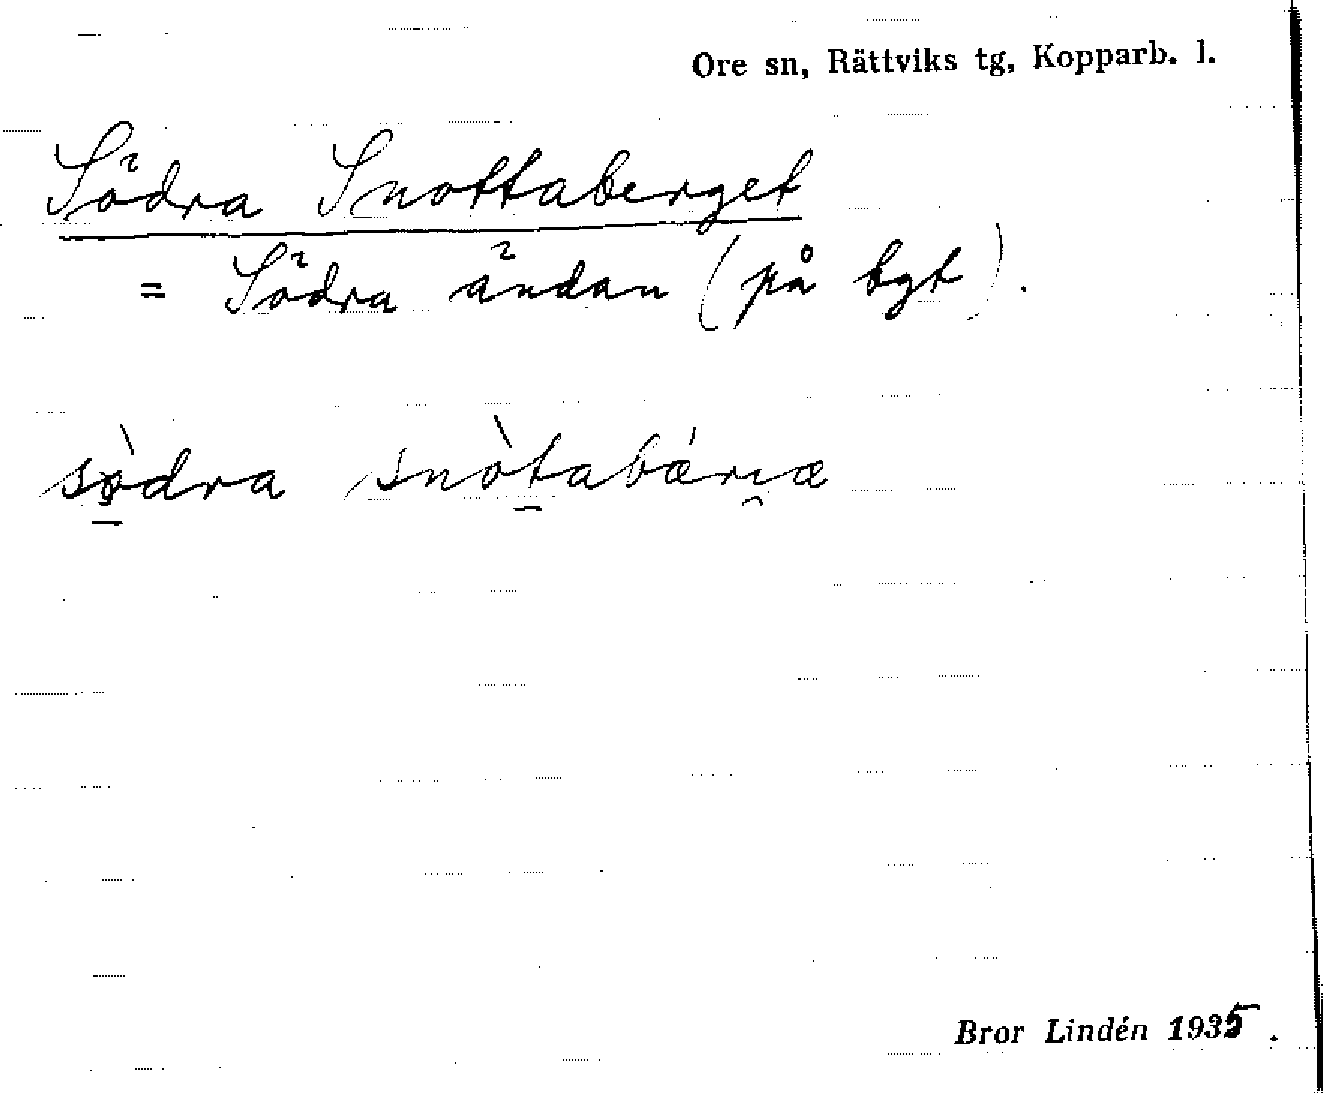 Ore sn, Rättviks tg, Kopparb. l.
Södra Snottaberget
= Södra ändan (på bgt).
sò̱dra snòtabǽri̯æ
Bror Lindén 1935.